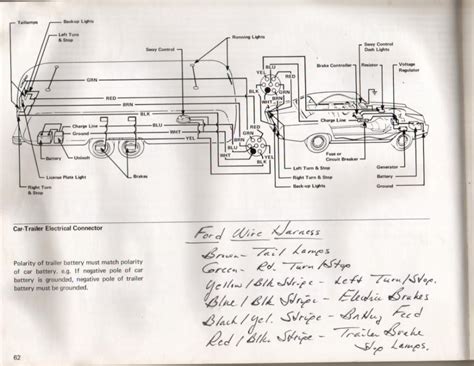 Taillamps
Back-up Lights
Left Turn
& Stop
Running Lights
Sway Control
Sway Control
Dash Lights
Brake Controller
Resistor
Voltage
Regulator
BLU
YEL
RED
GRN
GRN
BLK
RED
BLK
YEL
Charge Line
BLK
Ground
WHT
BLU
BLU
WHT
YEL
BLK
RED
Charge Line
Ground
Battery
Univolt
Brakes
License Plate Light
Right Turn
& Stop
Fuse or
Circuit Breaker
Left Turn & Stop
Right Turn & Stop
Back-up Lights
Generator
Battery
Car-Trailer Electrical Connector
Polarity of trailer battery must match polarity
of car battery. e.g. If negative pole of car
battery is grounded, negative pole of trailer
battery must be grounded.
Ford Wire Harness
Brown - Tail Lamps
Green - Rt. Turn/Stop
Yellow/Blk Stripe - Left Turn/Stop.
Blue/Blk Stripe - Electric Brakes
Black/Yel. Stripe - Feed
Red/Blk. Stripe - Trailer Brake
Stop Lamps.
62